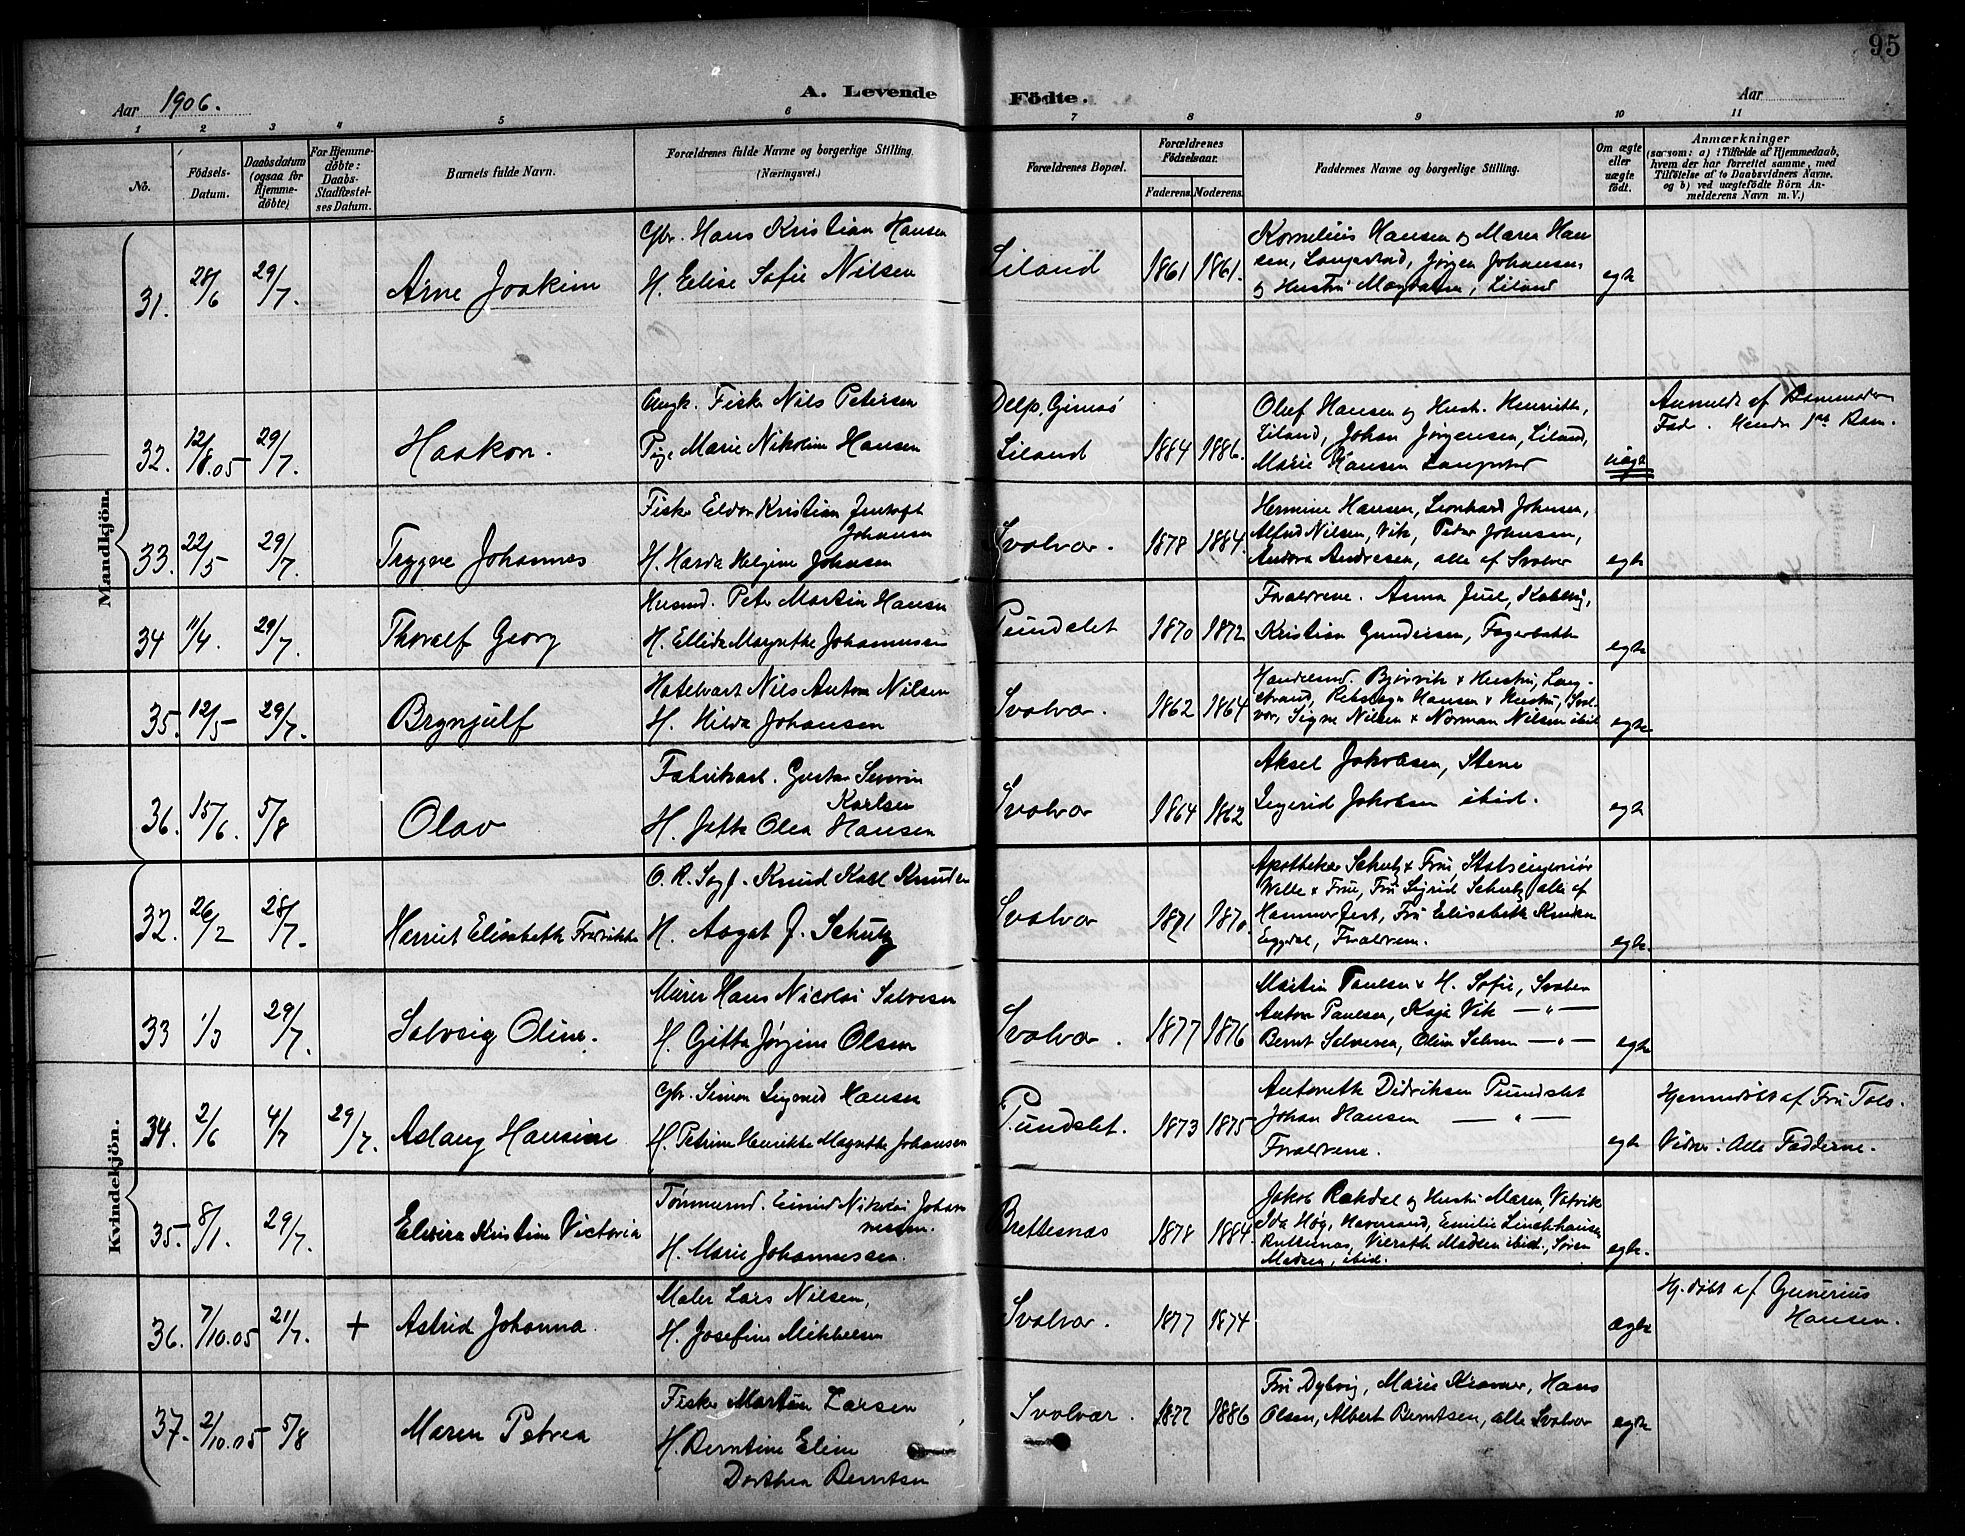 95
Aar 1906.
A. Levende
Födte.
Aar
1
2
3
4
5
6
7
8
9
10
11
No.
Födsels-
Datum.
Daabsdatum
(ogsaa for
Hjemme-
döbte)
For Hjemme-
döbte:
Daabs-
Stadfæstel-
ses Datum.
Barnets fulde Navn.
Forældrenes fulde Navne og borgerlige Stilling.
(Næringsvei.)
Forældrenes Bopæl.
Forældrenes
Födselsaar.
Faderens.
Moderens.
Faddernes Navne og borgerlige Stilling.
Om ægte
eller
uægte
födt.
Anmærkninger
(saasom: a) i Tilfælde af Hjemmedaab,
hvem der har forrettet samme, med
Tilföielse af to Daabsvidners Navne.
og b) ved uægtefödte Börn An-
melderens Navn m. V.)
Mandkjön.
31. 28/6 29/7. Arne Joakim
Gbr. Hans Kristian Hansen
H. Elise Sofie Nilsen
Liland 1861 1861.
Kornelius Hansen og Maren Han
sen, Langstrand, Jørgen Johansen
og Hustru Magdalena, Liland
egte
32. 12/8.05 29/7. Haakon.
Ungk. Fisker Nils Petersen
Pige Marie Nikoline Hansen
Delp, Gimsø
Liland 1884 1886.
Oluf Hansen og Hust. Henrikke,
Liland, Johan Jørgensen, Liland,
Marie Hansen Langstrand
uægte
Anmeldt af Barnemoderen
33. 22/5 29/7. Trygve Johannes
Fisker Eldor Kristian Jentoft
Johansen
H. Harda Helgine Johnsen
Svolvær. 1878 1884.
Hermine Hansen, Leonhard Johnsen,
Alfred Nilsen, Vik, Peder Johnsen,
Andora Andresen, alle af Svolvær
egte
34 11/4. 29/7. Thoralf Georg
Husmd. Peter Martin Hansen
H. Ellida Margrethe Johannessen
Pundslet 1870 1872
Forældrene. Anna Juul, Kabelvåg,
Kristian Gundersen, Fagerbakke
egte
35. 12/5 29/7. Brynjulf
Hotelvært Nils Anton Nilsen
H. Hilda Johansen
Svolvær. 1862 1864
Handelsmd. Bjørvik & Hustru, Lang-
strand, Rebslager Hansen & Hustru, Svol-
vær, Signe Nilsen & Norman Nilsen ibid
egte
36. 15/6. 5/8 Olav
Fabrikant. Gustav Severin
Karlsen
H. Jette Olea Hansen
Svolvær 1864 1862
Aksel Jakobsen, Stene
Ingerid Jakobsen ibid.
egte
Kvindekjön.
32. 26/2 28/7. Harriet Elisabeth Fredrikke
O. R. Sagf. Knud Karl Knudsen
H. Aagot J. Schulz
Svolvær 1871 1870.
Apotheker Schulz & Frue, Statsingeniør
Welle & Frue, Frk Sigrid Schulz, alle af
Hammerfest, Fru Elisabeth Knudsen
Eggedal, Forældrene.
egte.
33 1/3 29/7. Solveig Oline.
Murer Hans Nicolai Salvesen
H. Gitta Jørgine Olsen
Svolvær. 1877 1876
Martin Paulsen & H. Sofie, Svolvær
Anton Paulsen, Kaja Vik — " —
Bernt Salvesen, Oline Salvesen — " —
egte
34. 2/6 4/7 29/7. Aslaug Hansine
Gbr. Simon Sigvard Hansen
H. Petrine Henrikke Margrethe Johansen
Pundslet. 1873 1875
Antonette Didriksen Pundslet
Johan Hansen — " —
Forældrene.
egte
Hjemmedøbt af Fru Tals.
Vidner: Alle Fadderne.
35. 8/1. 29/7. Elvira Kristine Victoria
Tømmermd. Eivind Nikolai Johan
nessen.
H. Marie Johannessen.
Brettesnæs 1878 1884
Jakob Rakdal og Hustru Maren, Vatvik
Ida Høg, Haversand, Emilie Linckhausen,
Brettesnæs, Madsen ibid., Søren
Madsen, ibid.
egte.
36. 7/10.05 21/7. + Astrid Johanna.
Maler Lars Nilsen,
H. Josefine Mikkelsen
Svolvær. 1877 1874
ægte
Hj. døbt af Gunerius
Hansen.
37. 2/10.05 5/8 Maren Petrea
Fisker Martin Larsen
H. Berntine Eline
Dorthea Berntsen
Svolvær. 1877 1886
Fru Dybvig, Marie Kramer, Hans
Olsen, Albert Berntsen, alle Svolvær
egte